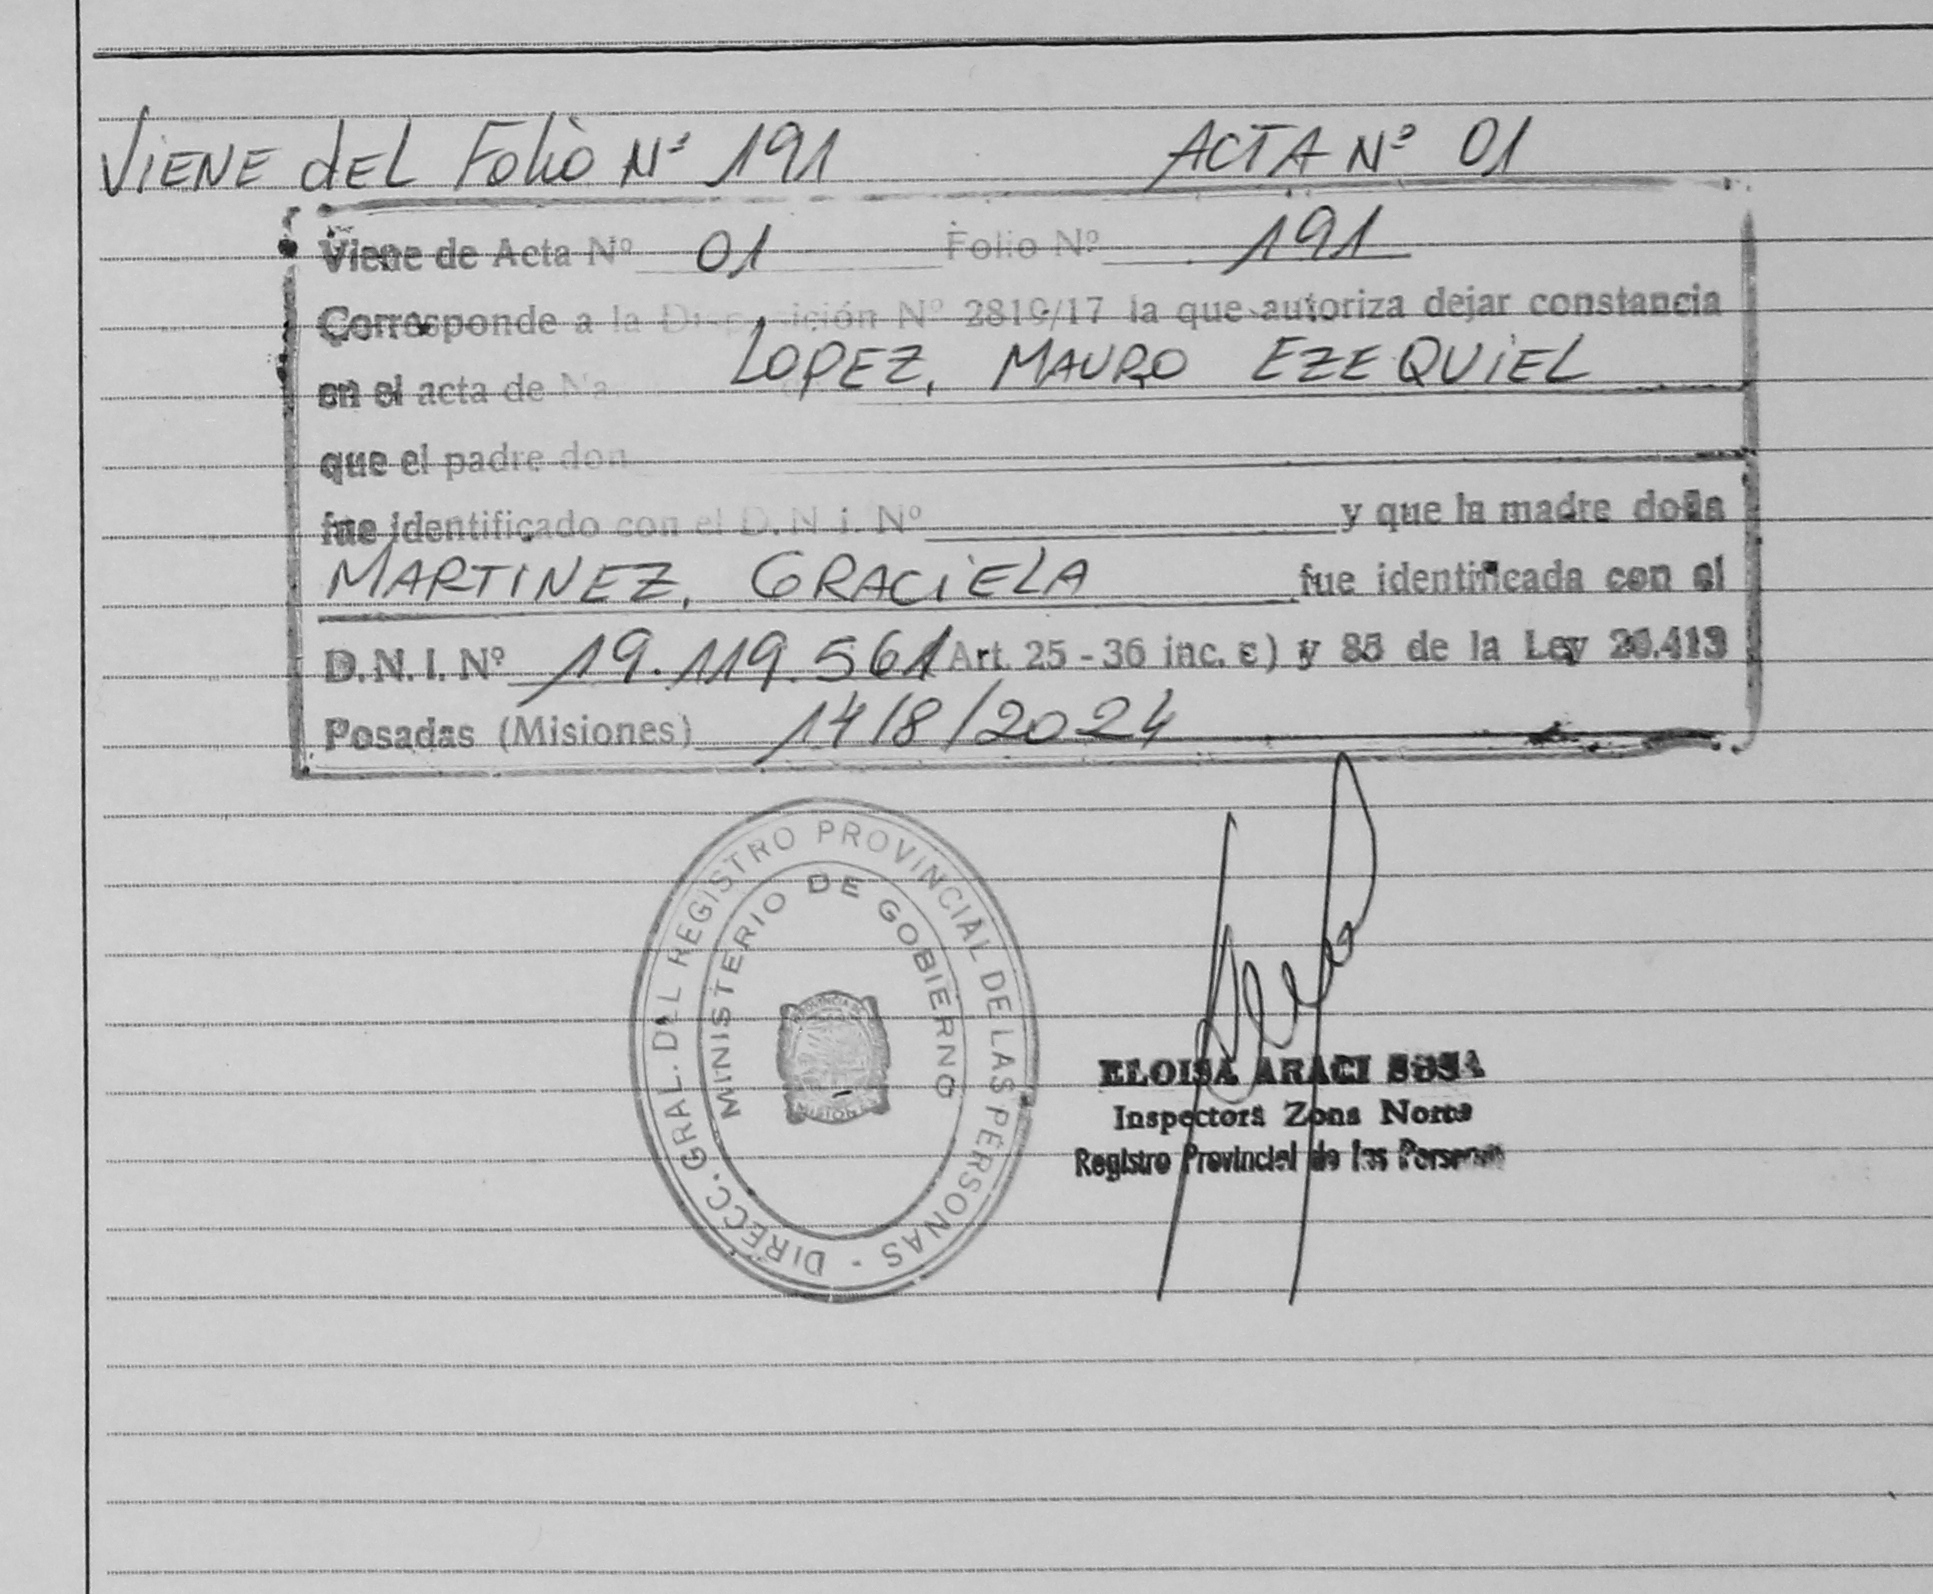 VIENE dEL Folio Nº 191 ACTA Nº 01
Viene de Acta Nº 01 Folio Nº 191
Corresponde a la Disposición Nº 2819/17 la que autoriza dejar constancia
en el acta de Na LOPEZ, MAURO EZEQUIEL
que el padre don
fue identificado con el D.N.i. Nº y que la madre doña
MARTINEZ, GRACIELA fue identificada con el
D.N.I. Nº 19.119.561 Art. 25 - 36 inc. c) y 85 de la Ley 26.413
Posadas (Misiones) 14/8/2024
DIRECC. GRAL. DEL REGISTRO PROVINCIAL DE LAS PERSONAS -
MINISTERIO DE GOBIERNO
PROVINCIA
MISIONES
ELOISA ARACI SOSA
Inspectora Zona Norte
Registro Provincial de las Personas